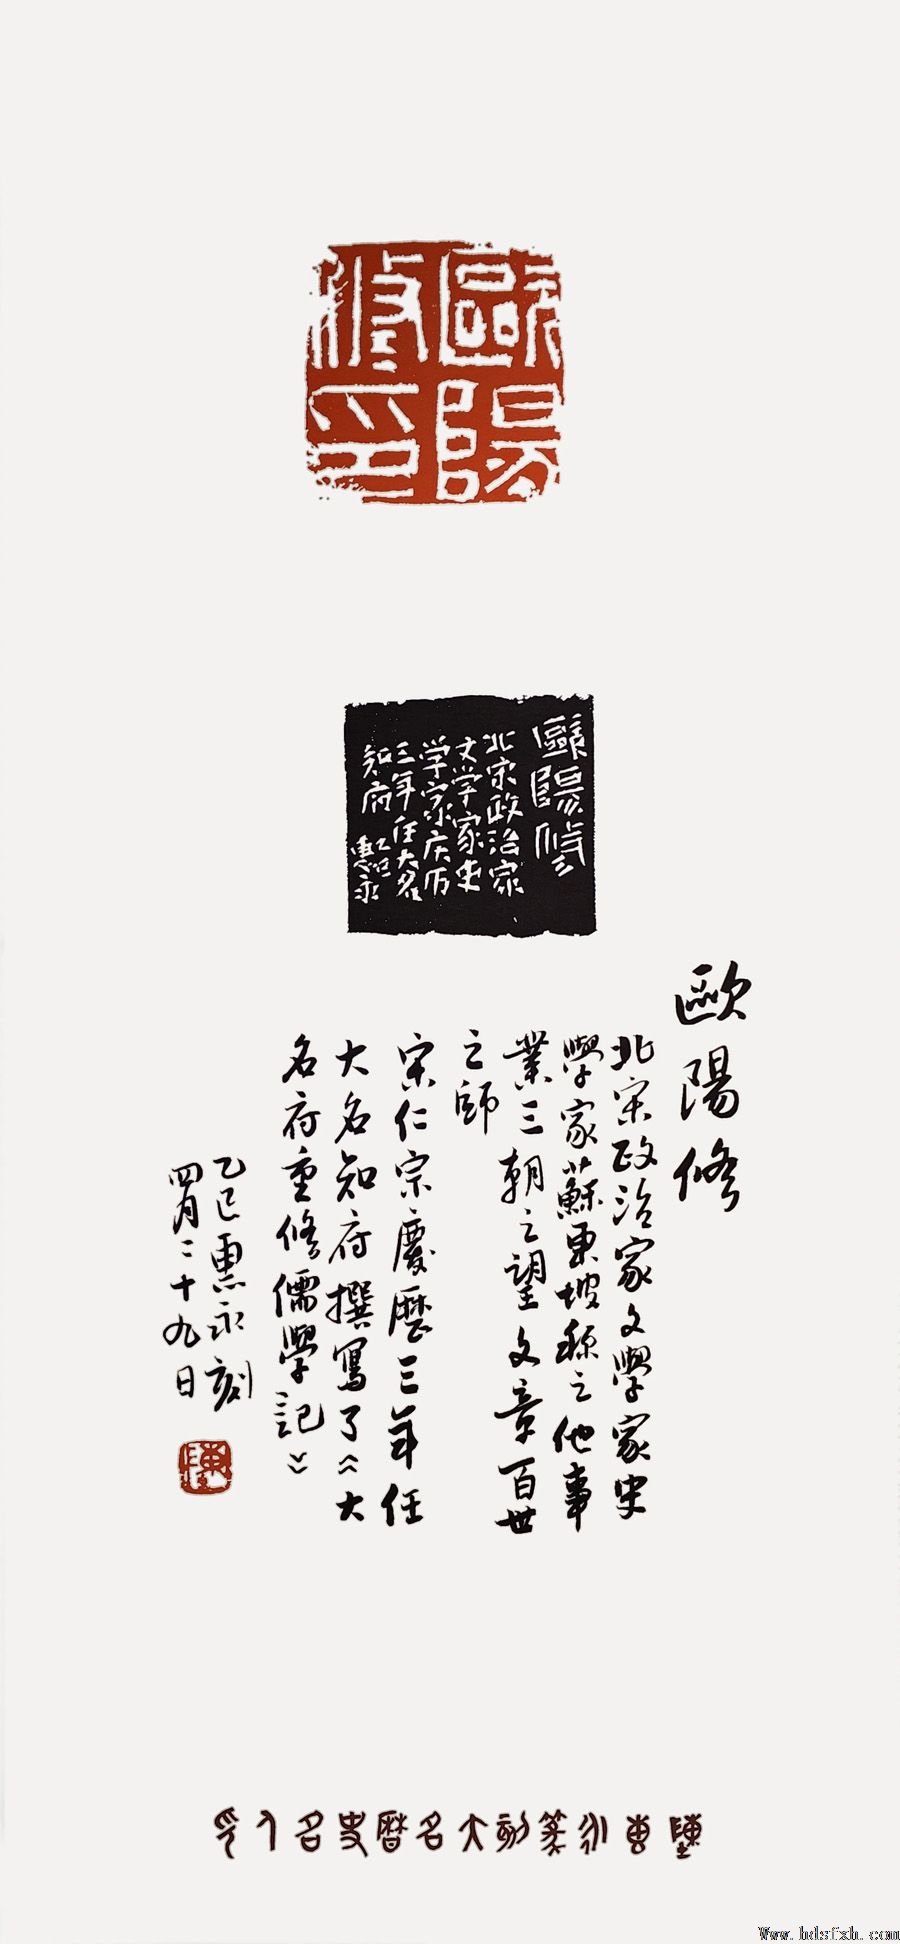 歐陽修印
歐陽修
北宋政治家
文学家史
学家庆历
三年任大名
知府
乙巳惠永
歐陽修
北宋政治家文學家史
學家蘇東坡称之他事
業三朝之望文章百世
之師
宋仁宗慶曆三年任
大名知府撰寫了《大
名府重修儒學記》
乙巳惠永刻
四月二十九日
陳
陳惠永篆刻大名曆史名人印
Www.hdsfxh.com